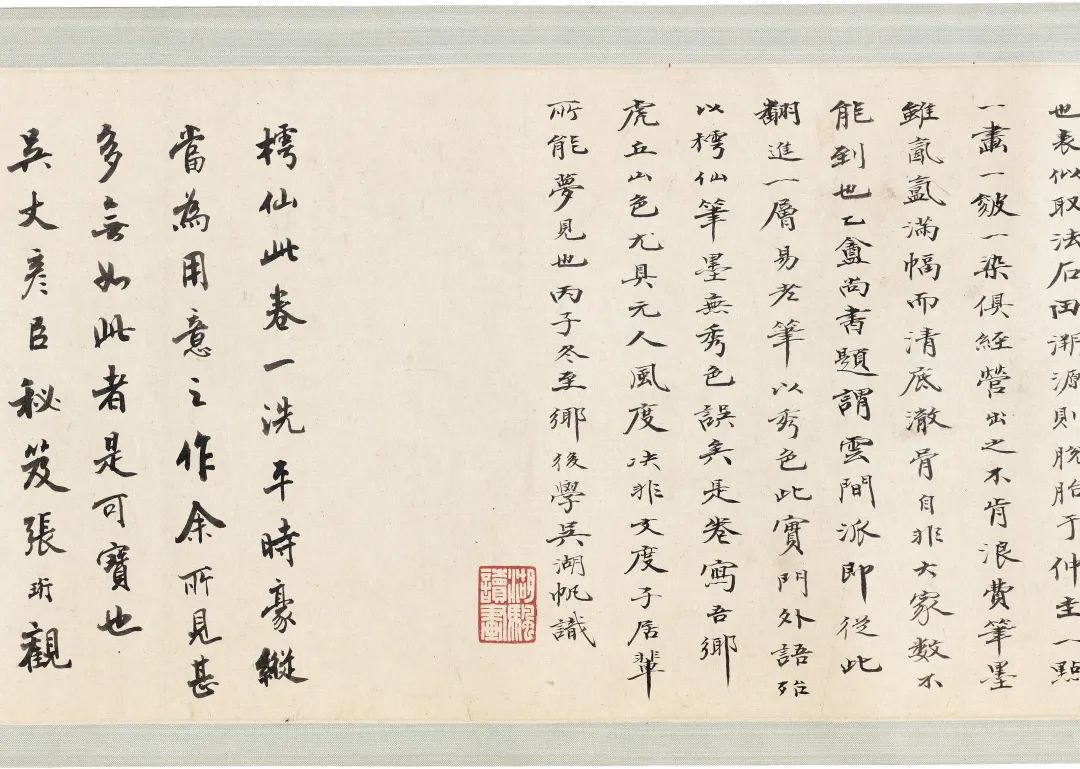 也表似取法石田溯源則脫胎于仲圭一點
一畫一皴一染俱經營出之不肯浪費筆墨
雖氤氳滿幅而清底澈骨自非大家數不
能到也乙盦尚書題謂雲間派即從此
翻進一層易老筆以秀色此實門外語殆
以樗仙筆墨無秀色誤矣是卷寫吾鄉
虎丘山色尤具元人風度决非文度子居輩
所能夢見也丙子冬至鄉後學吳湖帆識
湖颿讀畫
樗仙此卷一洗平時豪縱
當為用意之作余所見甚
多無如此者是可寶也
吳丈彥臣秘笈張珩觀